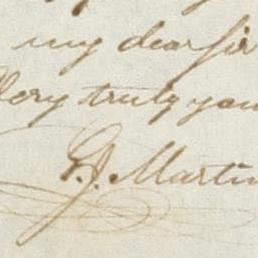 my dear sir
Very truly you
G. J. Martin